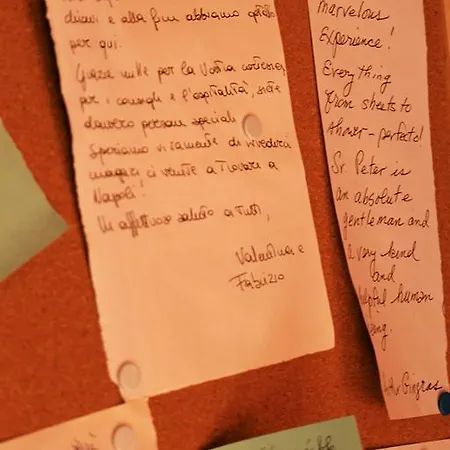 chiavi e alla fine abbiamo optato
per qui.
Grazie mille per la Vostra cortesia,
per i consigli e l'ospitalità, siete
davvero persone speciali
Speriamo vivamente di rivederci
magari, ci venite a trovare a
Napoli!
Un affettuoso saluto a tutti,
Valentina e
Fabrizio
marvelous
Experience!
Everything
from sheets to
shower - perfecto!
Sr. Peter is
an absolute
gentleman and
a very kind
and
helpful human
being.
Gingras